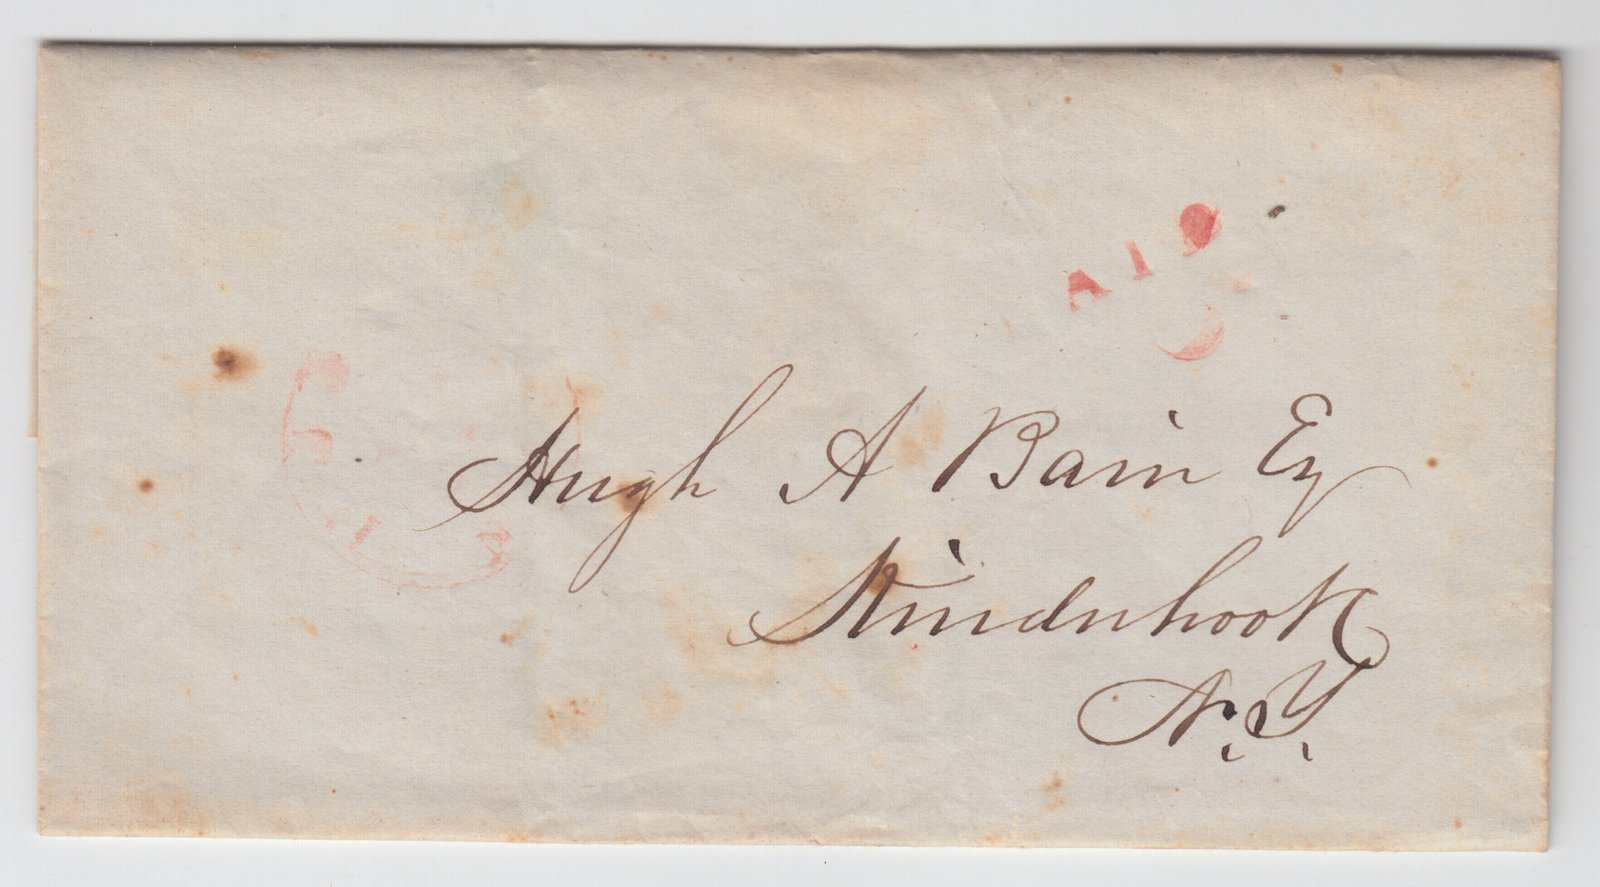 AID
Hugh A Bain Esq
Kinderhook
N.Y.